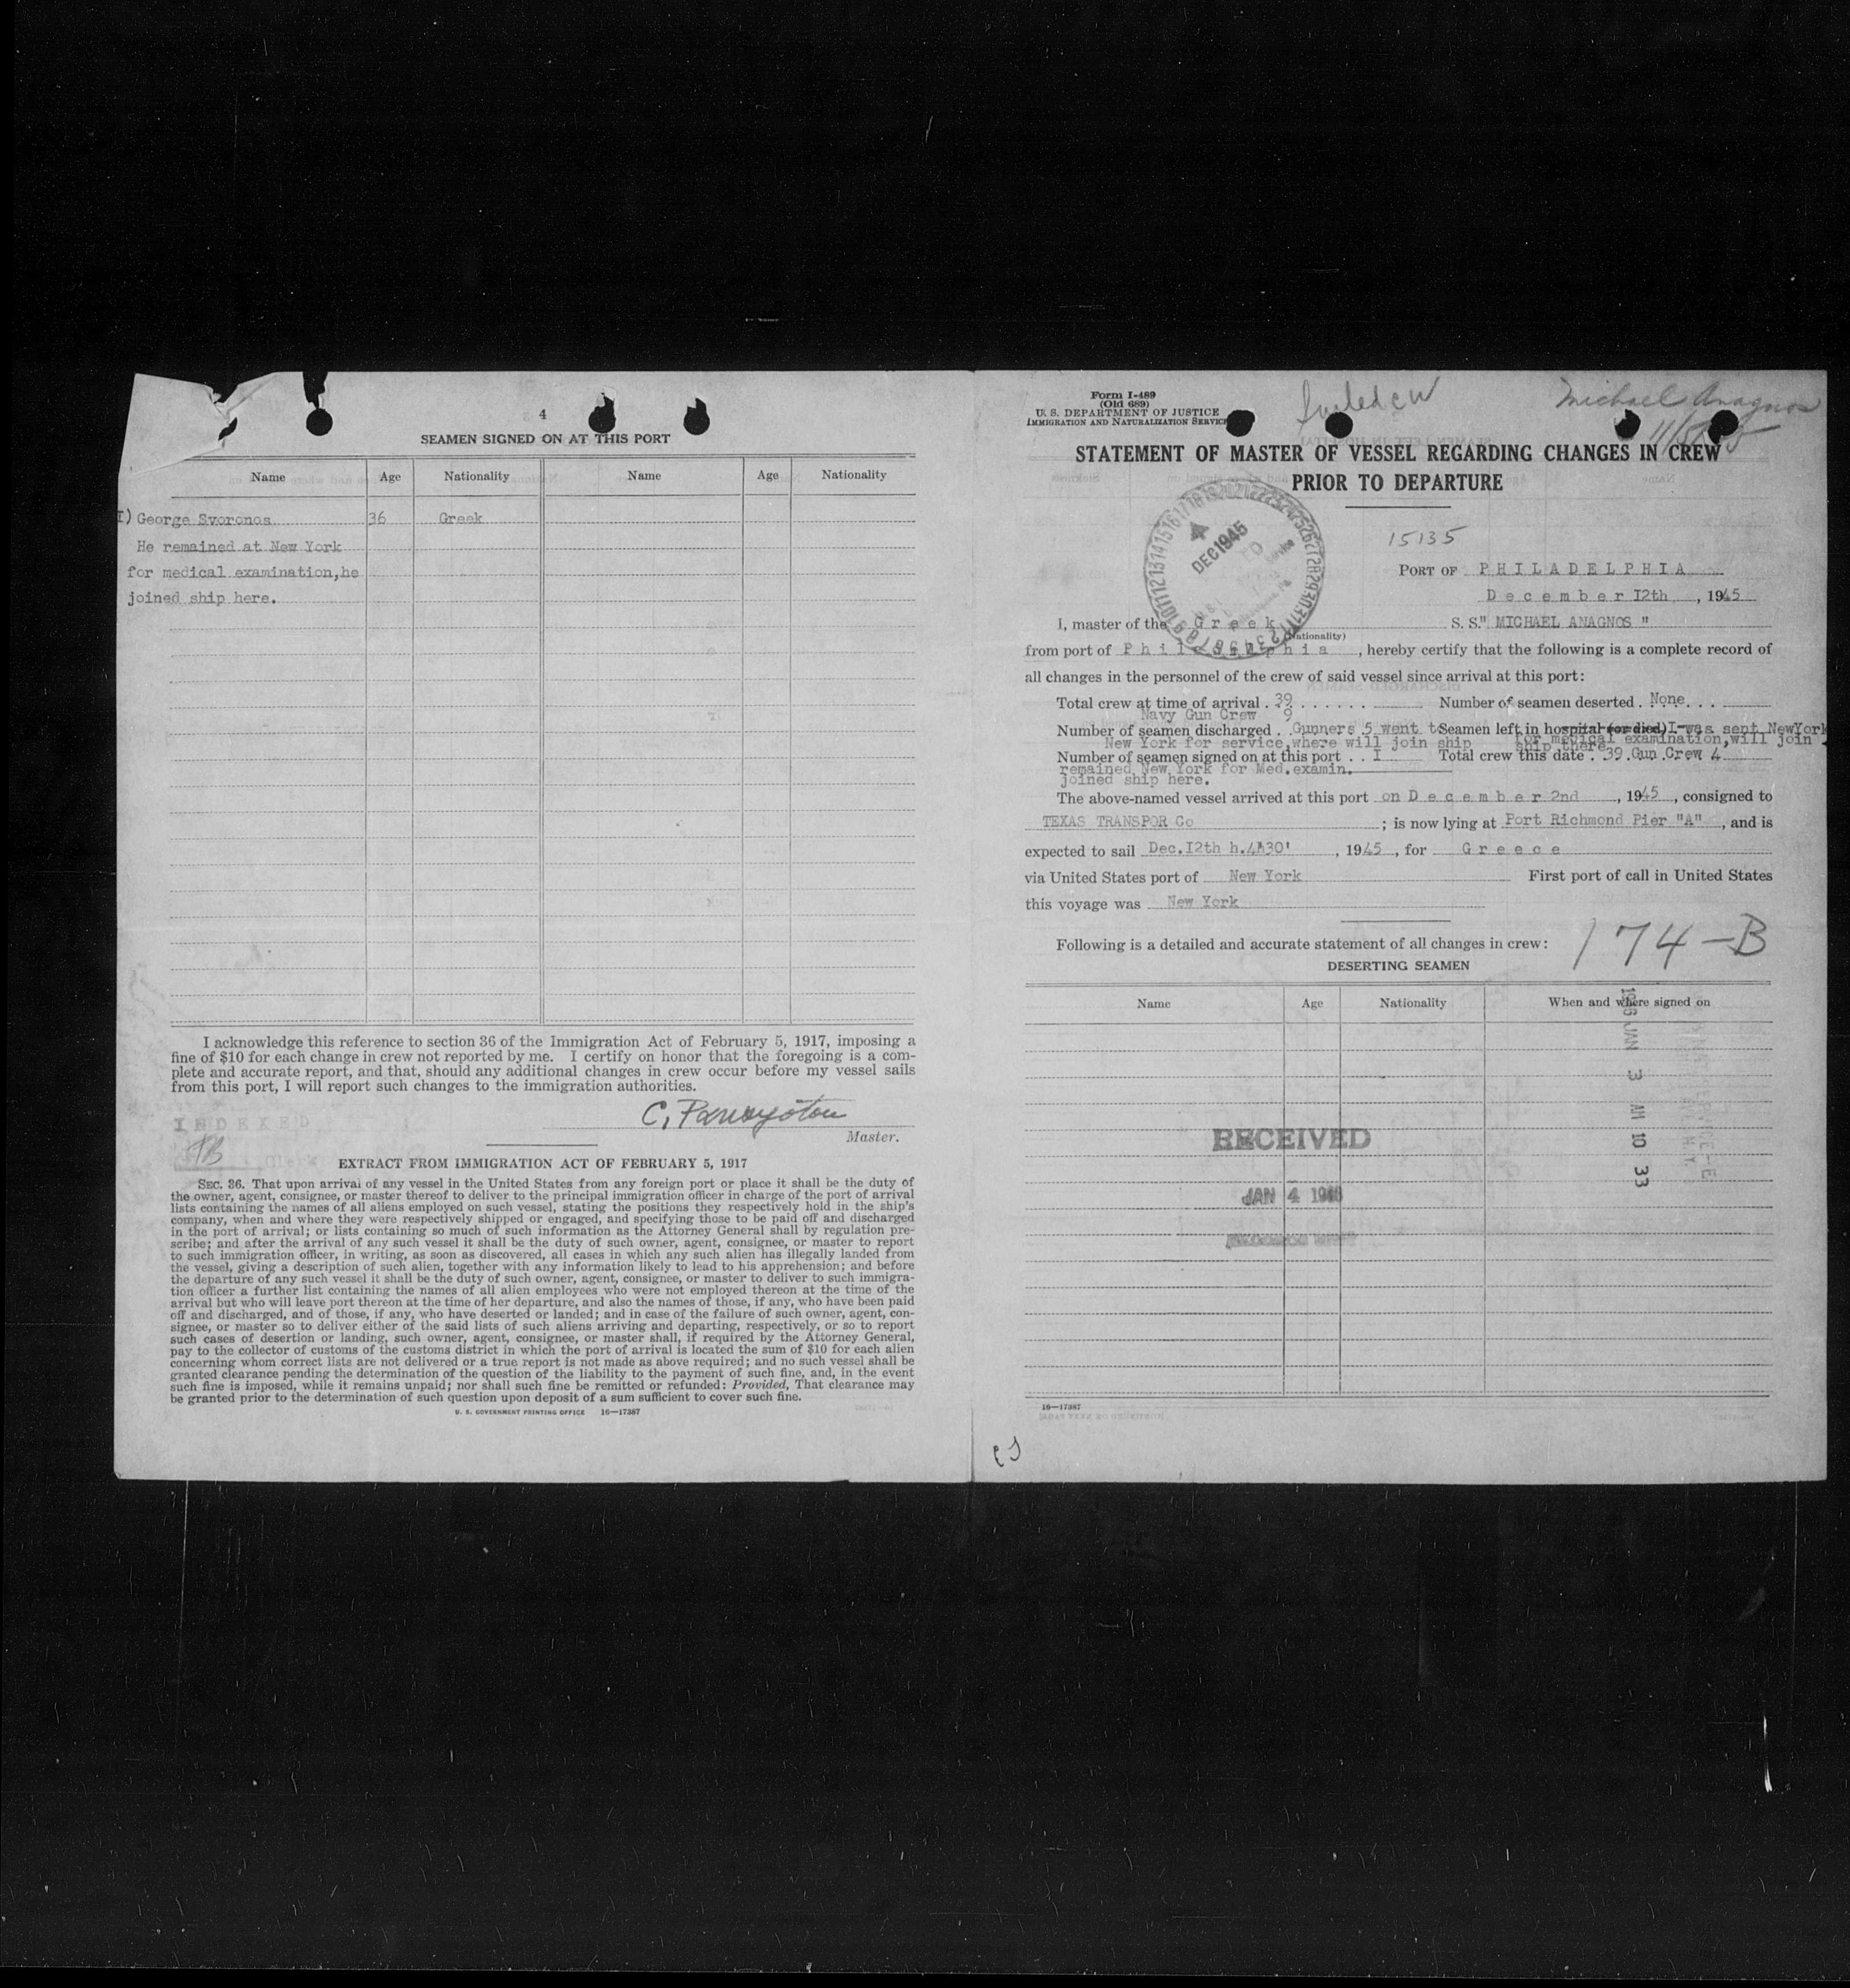 4
SEAMEN SIGNED ON AT THIS PORT
Name Age Nationality Name Age Nationality
I) George Svoronos 36 Greek
He remained at New York
for medical examination,he
joined ship here.
I acknowledge this reference to section 36 of the Immigration Act of February 5, 1917, imposing a
fine of $10 for each change in crew not reported by me. I certify on honor that the foregoing is a com-
plete and accurate report, and that, should any additional changes in crew occur before my vessel sails
from this port, I will report such changes to the immigration authorities.
INDEXED
C. Panayotou
Master.
EXTRACT FROM IMMIGRATION ACT OF FEBRUARY 5, 1917
SEC. 36. That upon arrival of any vessel in the United States from any foreign port or place it shall be the duty of
the owner, agent, consignee, or master thereof to deliver to the principal immigration officer in charge of the port of arrival
lists containing the names of all aliens employed on such vessel, stating the positions they respectively hold in the ship's
company, when and where they were respectively shipped or engaged, and specifying those to be paid off and discharged
in the port of arrival; or lists containing so much of such information as the Attorney General shall by regulation pre-
scribe; and after the arrival of any such vessel it shall be the duty of such owner, agent, consignee, or master to report
to such immigration officer, in writing, as soon as discovered, all cases in which any such alien has illegally landed from
the vessel, giving a description of such alien, together with any information likely to lead to his apprehension; and before
the departure of any such vessel it shall be the duty of such owner, agent, consignee, or master to deliver to such immigra-
tion officer a further list containing the names of all alien employees who were not employed thereon at the time of the
arrival but who will leave port thereon at the time of her departure, and also the names of those, if any, who have been paid
off and discharged, and of those, if any, who have deserted or landed; and in case of the failure of such owner, agent, con-
signee, or master so to deliver either of the said lists of such aliens arriving and departing, respectively, or so to report
such cases of desertion or landing, such owner, agent, consignee, or master shall, if required by the Attorney General,
pay to the collector of customs of the customs district in which the port of arrival is located the sum of $10 for each alien
concerning whom correct lists are not delivered or a true report is not made as above required; and no such vessel shall be
granted clearance pending the determination of the question of the liability to the payment of such fine, and, in the event
such fine is imposed, while it remains unpaid; nor shall such fine be remitted or refunded: Provided, That clearance may
be granted prior to the determination of such question upon deposit of a sum sufficient to cover such fine.
U. S. GOVERNMENT PRINTING OFFICE 16—17387
Form I-489
(Old 689)
U. S. DEPARTMENT OF JUSTICE
IMMIGRATION AND NATURALIZATION SERVICE
Michael Anagnos
STATEMENT OF MASTER OF VESSEL REGARDING CHANGES IN CREW
PRIOR TO DEPARTURE
4
DEC 1945
15135
PORT OF PHILADELPHIA
December I2th, 1945
I, master of the Greek S. S." MICHAEL ANAGNOS "
(Nationality)
from port of Philadelphia, hereby certify that the following is a complete record of
all changes in the personnel of the crew of said vessel since arrival at this port:
Total crew at time of arrival . 39 Number of seamen deserted . None
Navy Gun Crew 9
Number of seamen discharged . . Gunners 5 went to Seamen left in hospital (or died) I was sent NewYork
New York for service,where will join ship for medical examination,will join
ship there
Number of seamen signed on at this port . . I Total crew this date . 39 Gun Crew 4
remained New York for Med.examin.
joined ship here.
The above-named vessel arrived at this port on December 2nd, 1945, consigned to
TEXAS TRANSPOR Co ; is now lying at Port Richmond Pier "A", and is
expected to sail Dec.I2th h.4h30', 1945, for Greece
via United States port of New York First port of call in United States
this voyage was New York
Following is a detailed and accurate statement of all changes in crew: 174-B
DESERTING SEAMEN
Name Age Nationality When and where signed on
1946 JAN 3 AM 10 33
RECEIVED
JAN 4 1946
16—17387